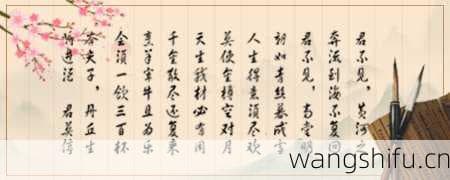 君不见，黄河之
奔流到海不复回
君不见，高堂明
朝如青丝暮成雪
人生得意须尽欢
莫使金樽空对月
天生我材必有用
千金散尽还复来
烹羊宰牛且为乐
会须一饮三百杯
岑夫子，丹丘生
将进酒 君莫停
wangshifu.cn